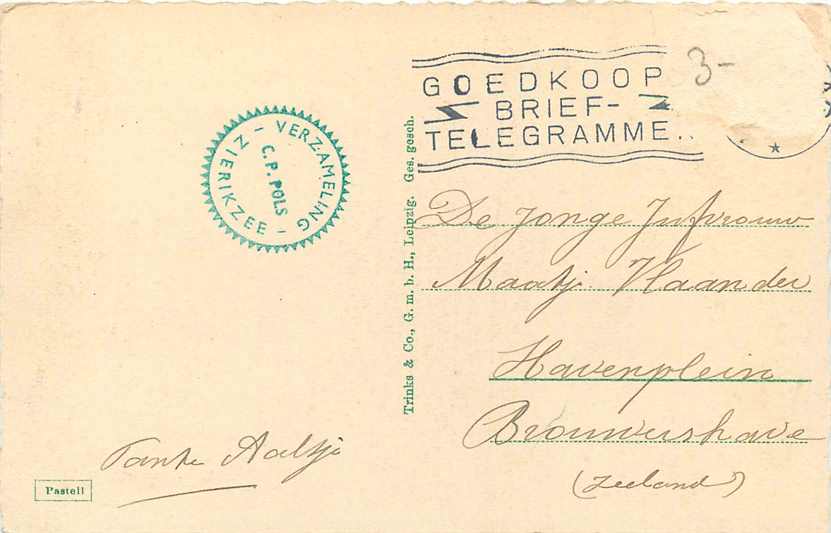 GOEDKOOP
BRIEF-
TELEGRAMME..
3-
VERZAMELING
C.P. POLS
ZIERIKZEE
Trinks & Co., G. m. b. H., Leipzig. Ges. gesch.
De Jonge Jufvrouw
Maatje Vlaander
Havenplein
Brouwershave
(Zeeland)
Tante Aaltje
Pastell